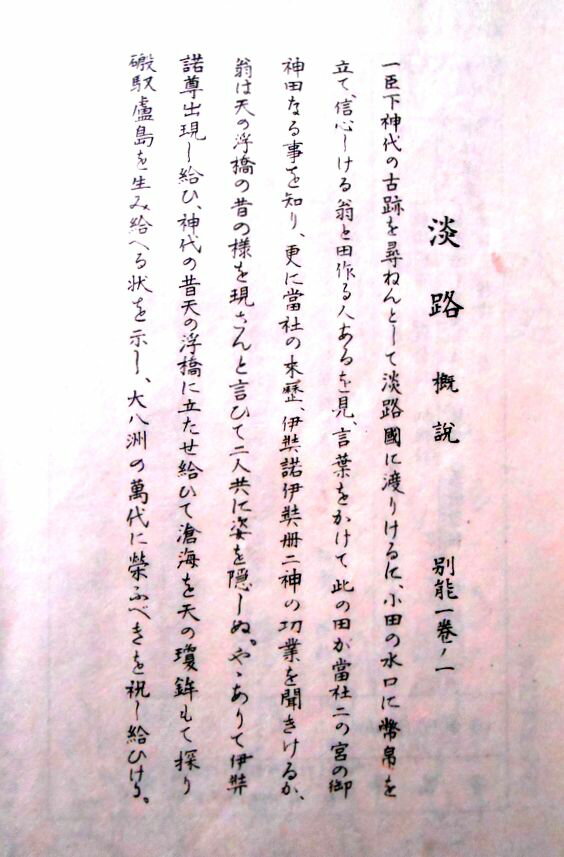 淡路 概說 別能一卷ノ一
一臣下神代の古跡を尋ねんとして淡路國に渡りけるに、小田の水口に幣帛を
立て、信心しける翁と田作る人あるを見、言葉をかけて此の田が當社二の宮の御
神田なる事を知り、更に當社の來歷、伊弉諾伊弉册二神の功業を聞きけるが、
翁は天の浮橋の昔の樣を現さんと言ひて二人共に姿を隱しぬ。やゝありて伊弉
諾尊出現し給ひ、神代の昔天の浮橋に立たせ給ひて滄海を天の瓊鉾もて探り
磤馭盧島を生み給へる狀を示し、大八洲の萬代に榮ふべきを祝し給ひけり。